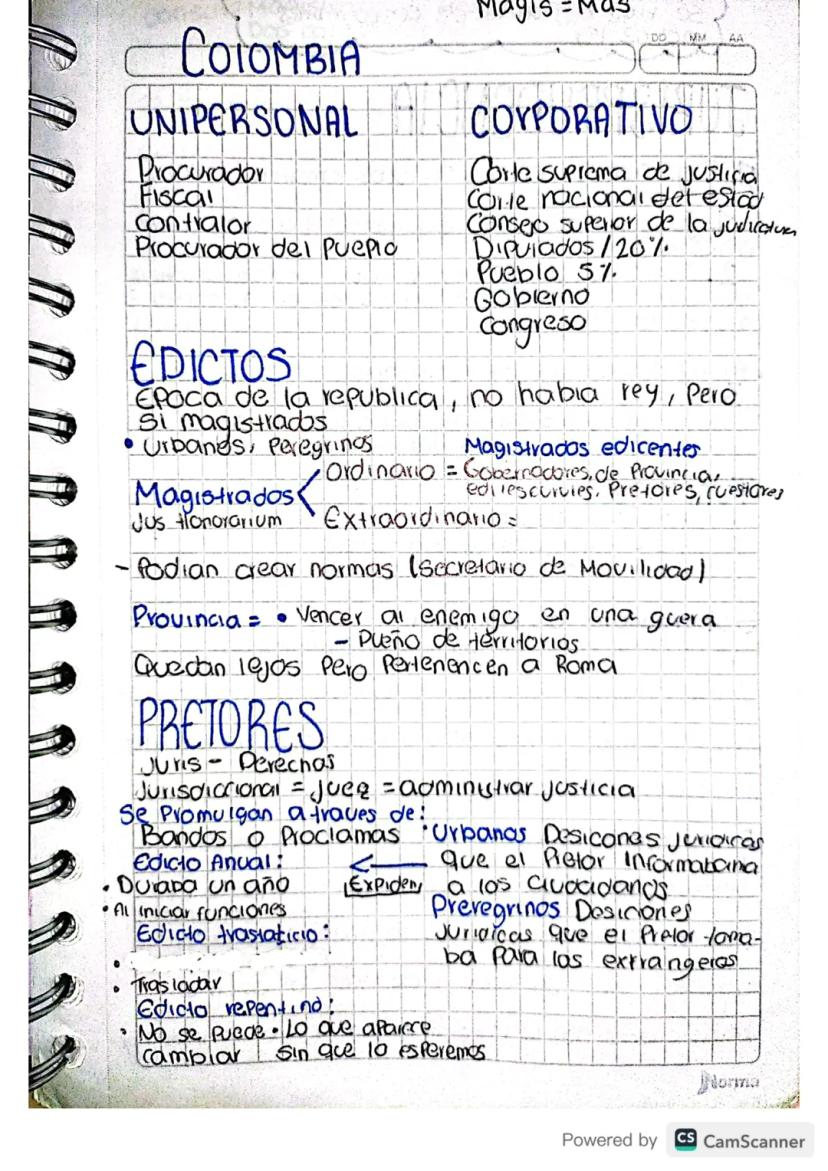 Magis = Mas
DD MM AA
COLOMBIA
UNIPERSONAL
Procurador
Fiscal
Contralor
Procurador del Pueblo
CORPORATIVO
Corte suprema de justicia
Corte nacional del estad
Consejo superior de la judicatura
Diputados / 20%
Pueblo 5%
Gobierno
congreso
EDICTOS
Epoca de la republica, no habia rey, Pero
si magistrados
• Urbanos, Peregrinos
Magistrados
Jus Honorarium
Magistrados edicentes
Ordinario = Gobernadores, de Provincia,
Pretores, cuestores
Extraordinario =
- Podian crear normas (Secretario de Movilidad)
Provincia = • Vencer al enemigo en una guera
- Dueño de territorios
Quedan lejos Pero Pertenencen a Roma
PRETORES
Juris - Derechos
Jurisdiccional = juez = administrar justicia
Se Promulgan a traves de:
Bandos o Proclamas
Edicto Anual:
• Duraba un año
• Al iniciar funciones
Edicto traslaticio:
• Trasladar
Edicto repentino:
• No se puede cambiar
• Lo que aparece
sin que lo esperemos
Expiden
• Urbanos Desicones Juridicas
que el Pretor Informabana
a los Ciudadanos
Preregrinos Desiciones
Juridicas que el Pretor toma-
ba Para los extrangeros
Norma
Powered by CS CamScanner